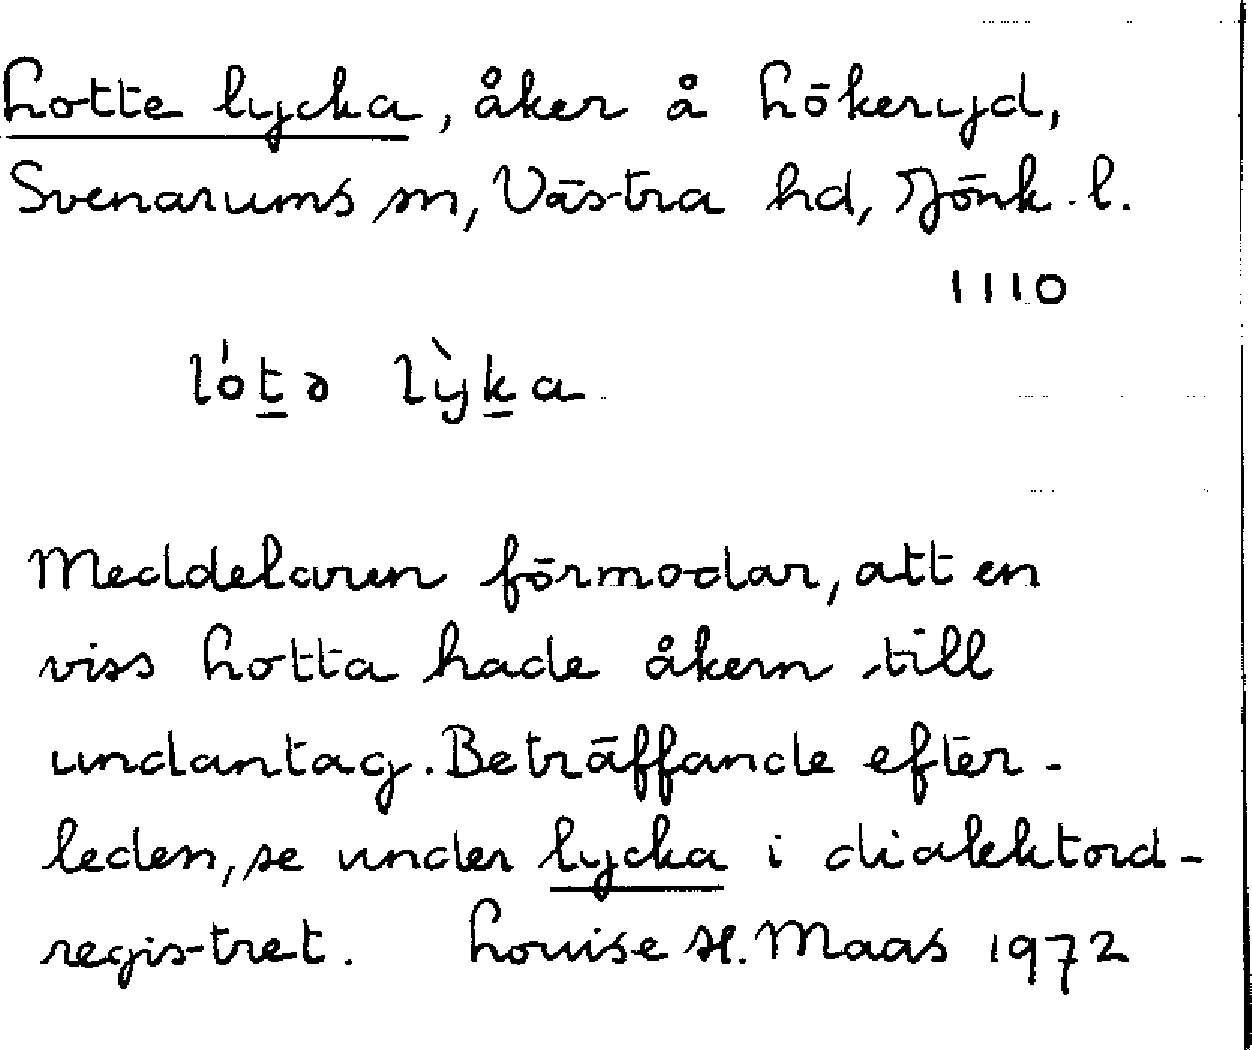 Lotte lycka, åker å Lökeryd,
Svenarums sn, Västra hd, Jönk. l.
1110
lót̲ə lỳk̲a
Meddelaren förmodar, att en
viss Lotta hade åkern till
undantag. Beträffande efter-
leden, se under lycka i dialektord-
registret. Louise H. Maas 1972